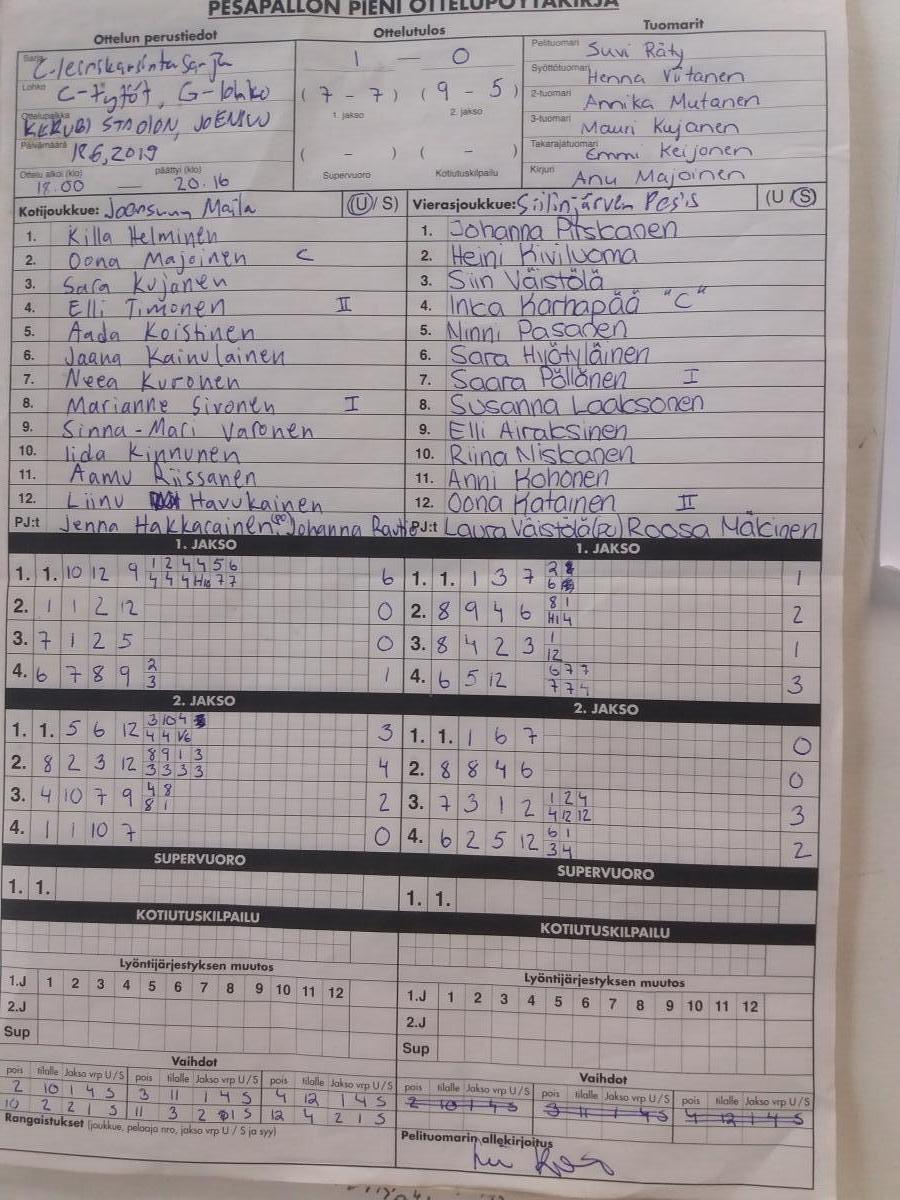 PESÄPALLON PIENI OTTELUPÖYTÄKIRJA
Ottelun perustiedot Ottelutulos Tuomarit
Sarja C-leiriskarsintasarja 1 — 0 Pelituomari Suvi Räty
Lohko C-tytöt, G-lohko (7 - 7) (9 - 5) Syöttötuomari Henna Viitanen
1. jakso 2. jakso 2-tuomari Annika Mutanen
Ottelupaikka KERUBI STADION, JOENSUU 3-tuomari Mauri Kujanen
Päivämäärä 18.6,2019 ( - ) ( - ) Takarajatuomari Emmi Keijonen
Ottelu alkoi (klo) 18.00 — päättyi (klo) 20.16 Supervuoro Kotiutuskilpailu Kirjuri Anu Majoinen
Kotijoukkue: Joensuun Maila (U/S) Vierasjoukkue: Siilinjärven Pesis (U/S)
1. Killa Helminen 1. Johanna Pitskanen
2. Oona Majoinen C 2. Heini Kiviluoma
3. Sara Kujanen 3. Siiri Väistölä
4. Elli Timonen II 4. Inka Karhapää "C"
5. Aada Koistinen 5. Ninni Pasanen
6. Jaana Kainulainen 6. Sara Hyötyläinen
7. Neea Kuronen 7. Saara Pöllänen I
8. Marianne Sivonen I 8. Susanna Laaksonen
9. Sinna-Mari Varonen 9. Elli Airaksinen
10. Iida Kinnunen 10. Riina Niskanen
11. Aamu Riissanen 11. Anni Kohonen
12. Liinu Havukainen 12. Oona Katainen II
PJ:t Jenna Hakkarainen (PJ) Johanna Rautio PJ:t Laura Väistölä (PJ) Roosa Mäkinen
1. JAKSO 1. JAKSO
1. 1. 10 12 9 1 2 4 4 5 6 6 1. 1. 1 3 7 2 1
4 4 4 H10 7 7 6
2. 1 1 2 12 0 2. 8 9 4 6 8 1 2
H1 4
3. 7 1 2 5 0 3. 8 4 2 3 1 1
12
4. 6 7 8 9 2 1 4. 6 5 12 6 7 7 3
3 7 7 4
2. JAKSO 2. JAKSO
1. 1. 5 6 12 3 10 4 3 1. 1. 1 6 7 0
4 4 V6
2. 8 2 3 12 8 9 1 3 4 2. 8 8 4 6 0
3 3 3 3
3. 4 10 7 9 4 8 2 3. 7 3 1 2 1 2 4 3
8 1 4 12 12
4. 1 1 10 7 0 4. 6 2 5 12 6 1 2
3 4
SUPERVUORO SUPERVUORO
1. 1. 1. 1.
KOTIUTUSKILPAILU KOTIUTUSKILPAILU
Lyöntijärjestyksen muutos Lyöntijärjestyksen muutos
1.J 1 2 3 4 5 6 7 8 9 10 11 12 1.J 1 2 3 4 5 6 7 8 9 10 11 12
2.J 2.J
Sup Sup
Vaihdot Vaihdot
pois tilalle Jakso vrp U/S pois tilalle Jakso vrp U/S pois tilalle Jakso vrp U/S pois tilalle Jakso vrp U/S pois tilalle Jakso vrp U/S pois tilalle Jakso vrp U/S
2 10 1 4 S 3 11 1 4 S 4 12 1 4 S 2 10 1 4 S 3 11 1 4 S 4 12 1 4 S
10 2 2 1 S 11 3 2 1 S 12 4 2 1 S
Rangaistukset (joukkue, pelaaja nro, jakso vrp U / S ja syy) Pelituomarin allekirjoitus